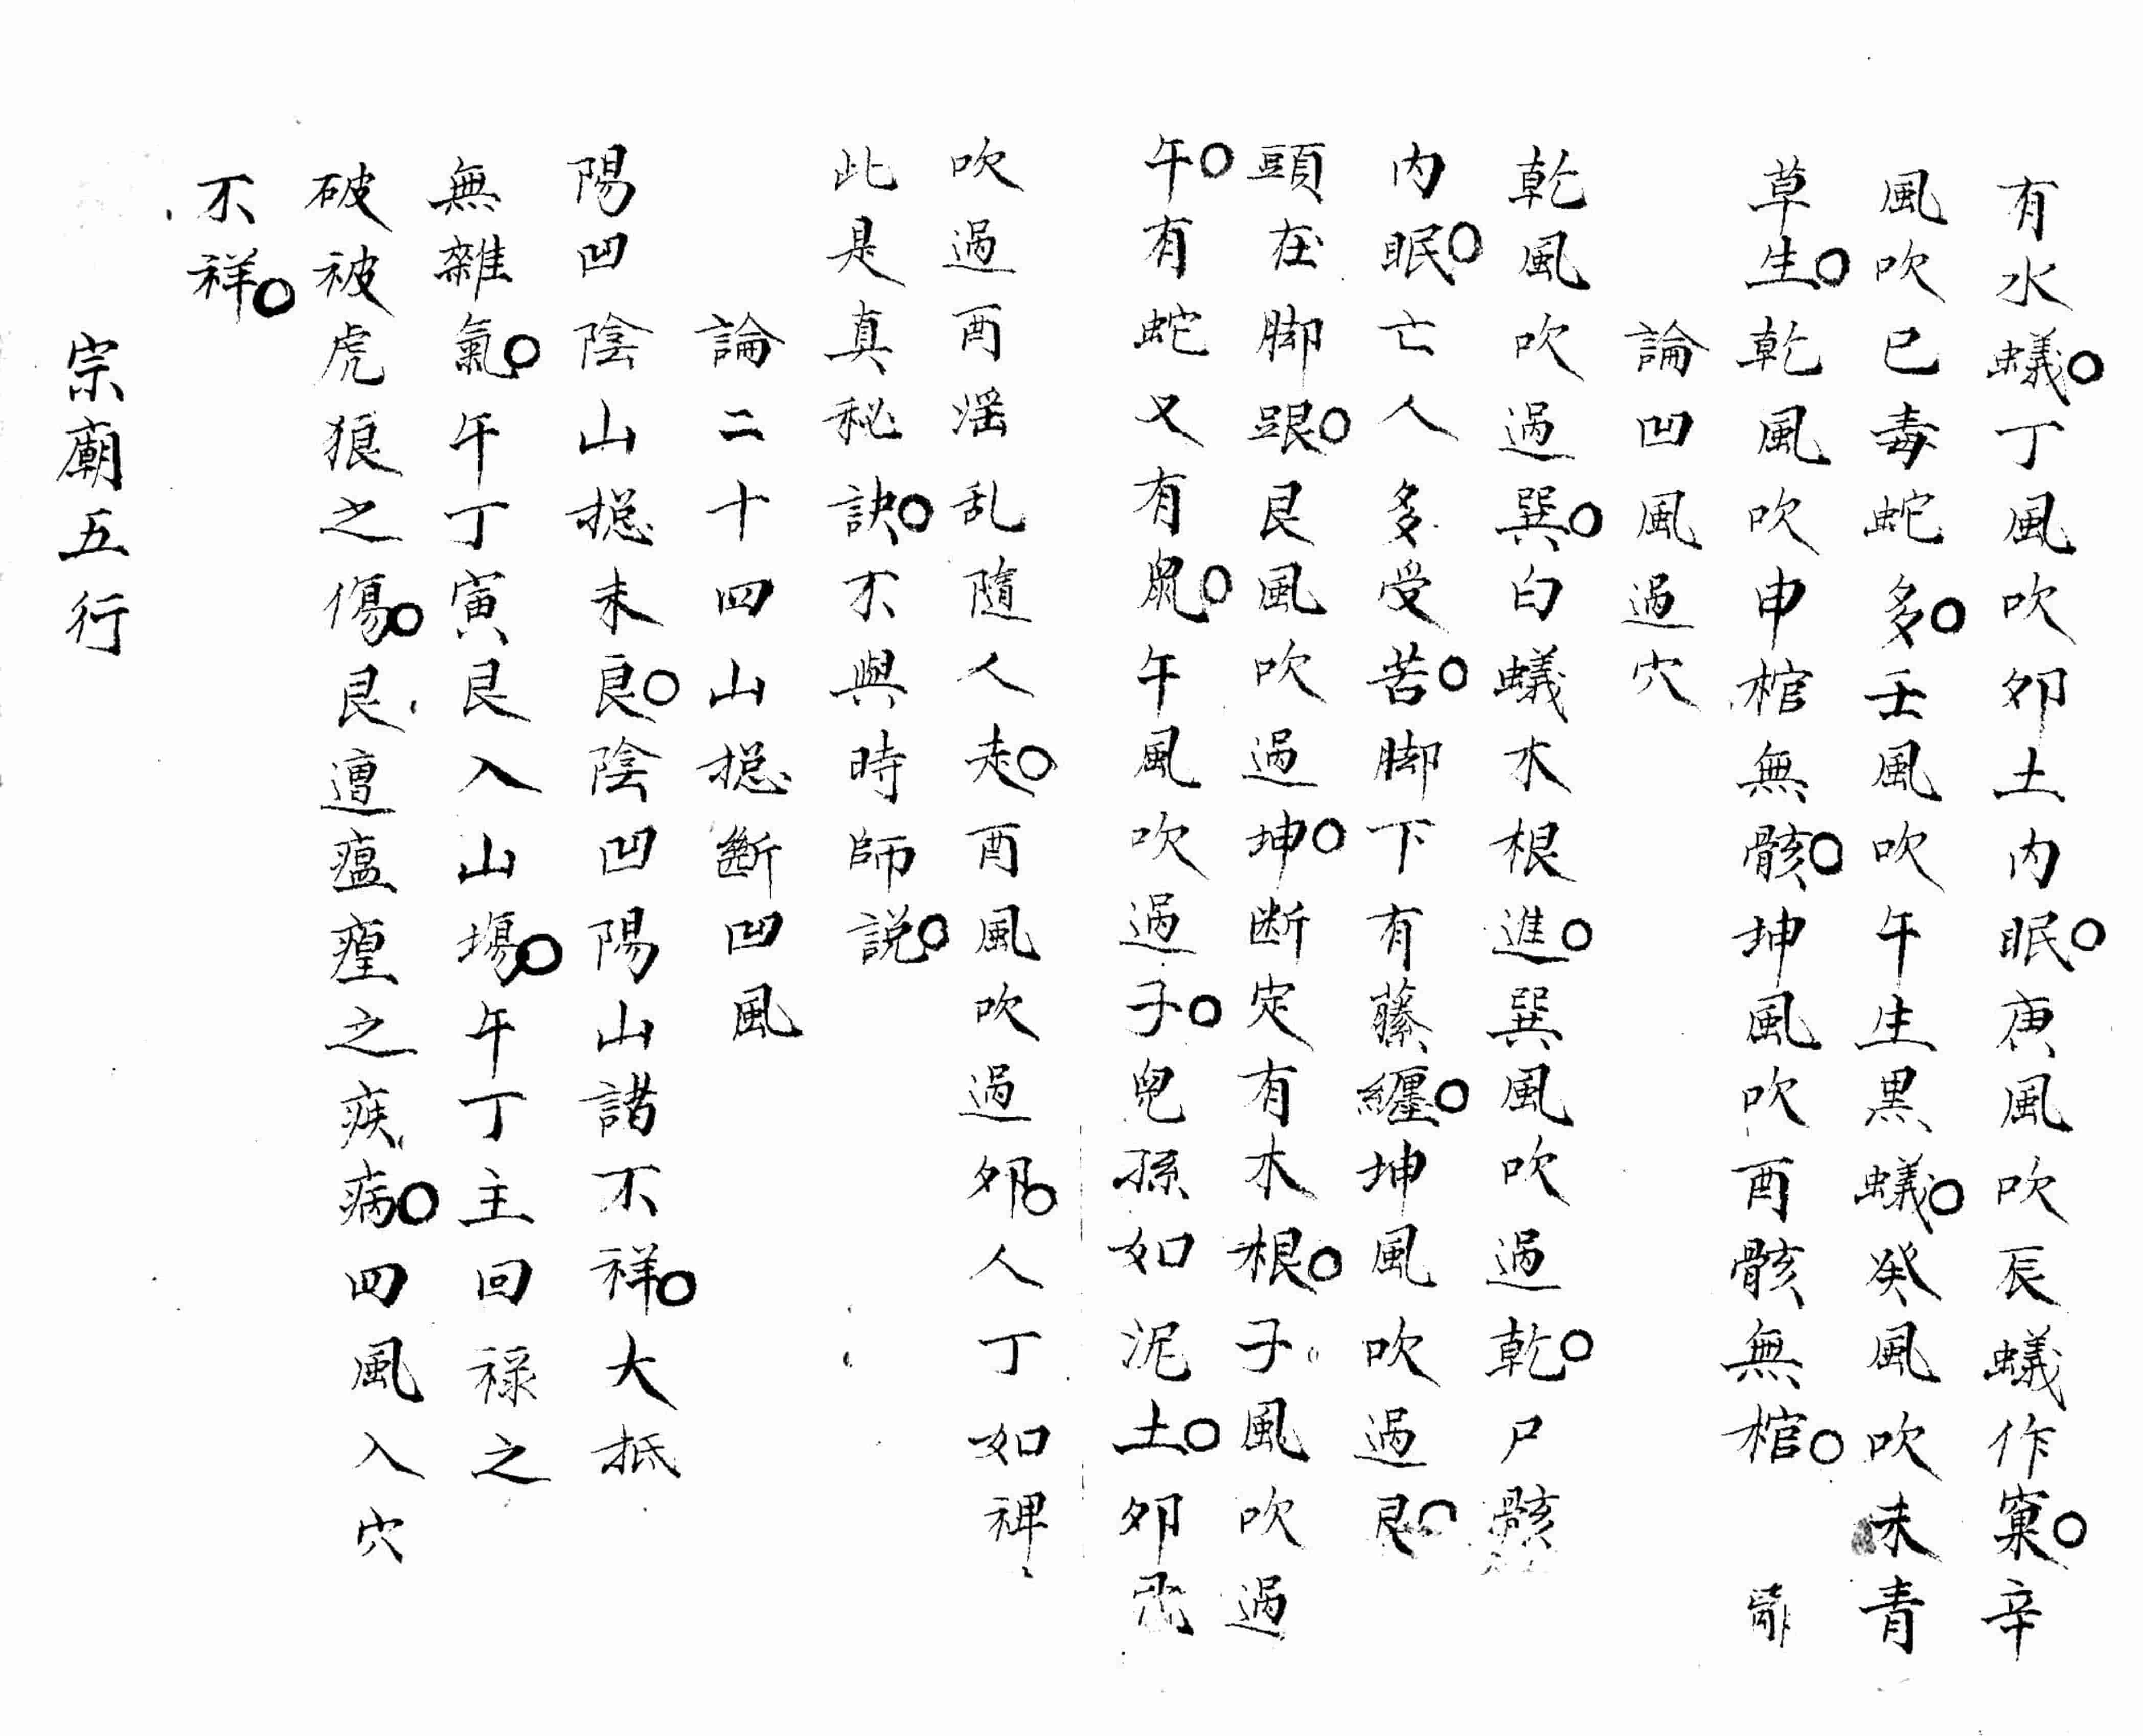 有水蟻○丁風吹卯土内眠○庚風吹辰蟻作窠○辛
風吹巳毒蛇多○壬風吹午生黒蟻○癸風吹未青
草生○乾風吹申棺無骸○坤風吹酉骸無棺○
論凹風過穴
乾風吹過巽○白蟻木根進○巽風吹過乾○尸骸
内眠○亡人多受苦○脚下有藤纏○坤風吹過艮○
頭在脚跟○艮風吹過坤○断定有木根○子風吹過
午○有蛇又有鼠○午風吹過子○兒孫如泥土○卯風
吹過酉滛乱隨人走○酉風吹過卯○人丁如禆
此是真秘訣○不與時師説○
論二十四山摠斷凹風
陽凹陰山摠未良○陰凹陽山諸不祥○大抵
無雜氣○午丁寅艮入山場○午丁主回禄之
破被虎狼之傷○艮遭瘟瘽之疾病○四風入穴
不祥○
宗廟五行